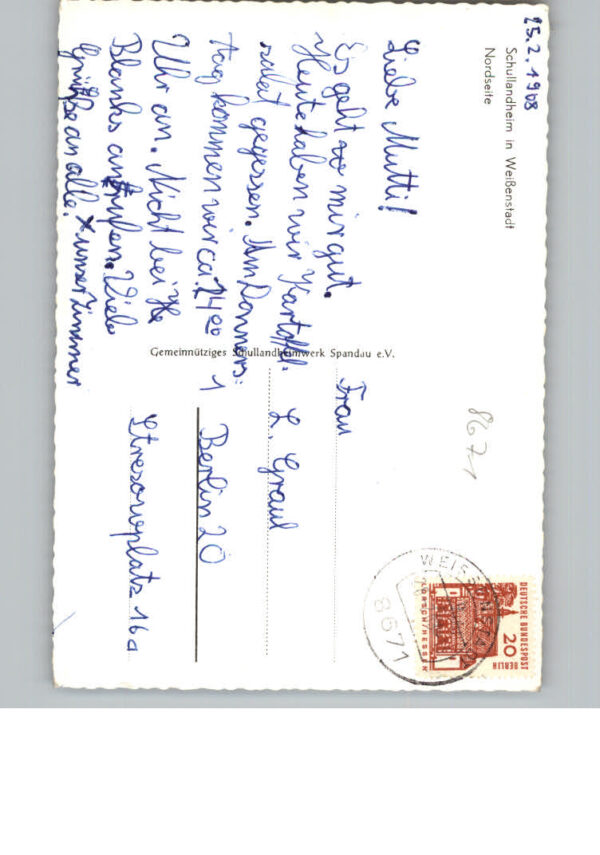 25.2.1968
Schullandheim in Weißenstadt
Nordseite
Liebe Mutti!
Es geht mir gut.
Heute haben wir Kartoffel-
salat gegessen. Am Donners-
tag kommen wir ca. 14 00
Uhr an. Nicht bei
Blanks anrufen. Viele
Grüße an alle.
x unser Zimmer
Gemeinnütziges Schullandheimwerk Spandau e.V.
Frau
L. Graul
1
Berlin 20
Stresowplatz 16a
8671
WEISSENSTADT
8671
DEUTSCHE BUNDESPOST
BERLIN
20
LORSCH/HESSEN